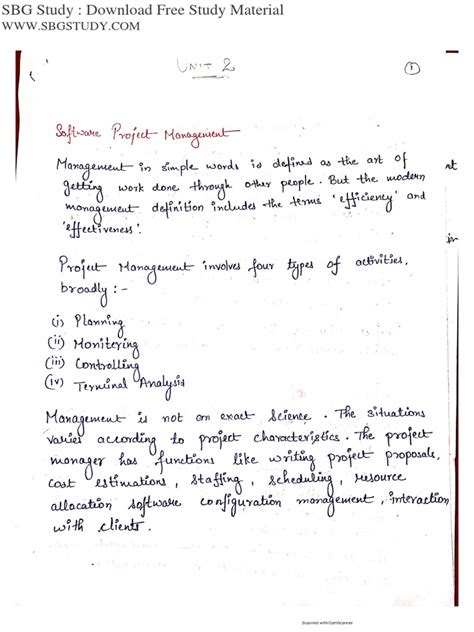 SBG Study : Download Free Study Material
WWW.SBGSTUDY.COM
UNIT 2
1
Software Project Management
Management in simple words is defined as the art of
getting work done through other people. But the modern
management definition includes the terms 'efficiency' and
'effectiveness'.
Project Management involves four types of activities,
broadly :-
(i) Planning
(ii) Monitoring
(iii) Controlling
(iv) Terminal Analysis
Management is not an exact Science. The situations
varies according to project characteristics. The project
manager has functions like writing project proposals,
cost estimations, staffing, scheduling, resource
allocation software configuration management, interaction
with clients.
Scanned with CamScanner